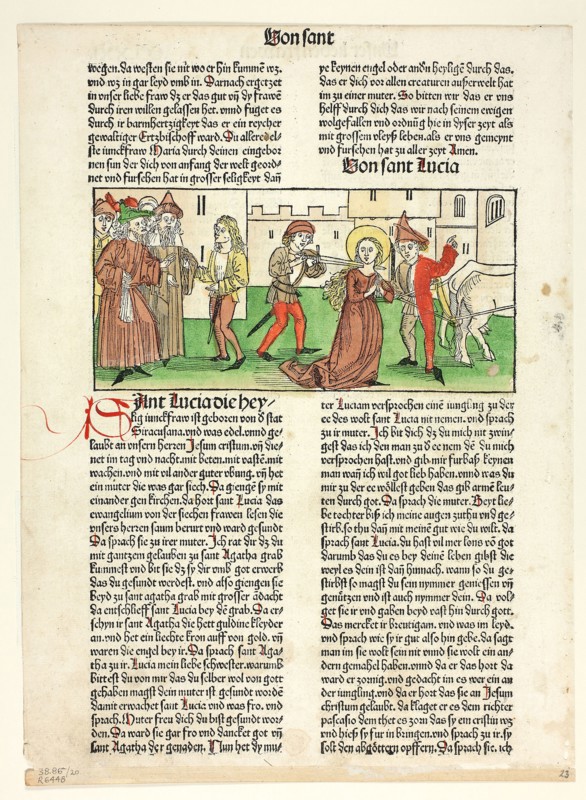 Von sant
wegen. da westen sie nit wo er hin kummē wz.
vnd wz in gar leyd vmb in. Darnach ergetzet
in vnser liebe fraw dz er das gut vn̄ dy frawē
durch iren willen gelassen het. vnnd fuget es
durch ir barmhertzigkeyt das er ein reycher
gewaltiger Ertzbischoff ward. Du alleredel-
ste iunckfraw Maria durch deinen eingebor
nen sun der dich von anfang der welt geord-
net vnd fursehen hat in grosser seligkeyt dan̄
ye keynen engel oder andn̄ heyligē durch das.
das er dich vor allen creaturen ausserwelt hat
im zu einer muter. So bitten wir das er vns
helff durch dich das wir nach seinem ewigen
wolgefallen vnd ordnūg hie in dyser zeyt als
mit grossem vleyß leben. als er vns gemeynt
vnd fursehen hat zu aller zeyt Amen.
Von sant Lucia
SAnt Lucia die hey-
lig iunckfraw ist geboren von d̄ stat
Siracusana. vnd was edel. vnnd ge-
laubt an vnsern herrn Jesum cristum. vn̄ die-
net im tag vnd nacht. mit beten. mit vastē. mit
wachen. vnd mit vil ander guter vbung. vn̄ het
ein muter die was gar siech. Da giengē sy mit
einander gen kirchen. da hort sant Lucia das
ewangelium von der siechen frawen lesen die
vnsers herren saum berurt vnd ward gesundt
Da sprach sie zu irer muter. Jch rat dir dz du
mit gantzem gelauben zu sant Agatha grab
kummest vnd bit sie dz sy dir vmb got erwerb
das du gesundt werdest. vnd also giengen sie
beyd zu sant agatha grab mit grosser ādacht
da entschlieff sant Lucia bey dē grab. Da er-
schyn ir sant Agatha die hett guldine kleyder
an. vnd het ein liechte kron auff von gold. vn̄
waren die engel bey ir. Da sprach sant Aga-
tha zu ir. Lucia mein liebe schwester. warumb
bittest du von mir das du selber wol von gott
gehaben magst dein muter ist gesundt wordē
damit erwachet sant Lucia vnd was fro. vnd
sprach. Muter freu dich du bist gesundt wor-
den. Da ward sie gar fro vnd dancket got vn̄
sant Agatha der genaden. Nun het dy mu-
ter Luciam versprochen einē iungling zu dem
ee des wolt sant Lucia nit nemen. vnd sprach
zu ir muter. Jch bit dich dz du mich nit zwin-
gest das ich den man zu d̄ ee nem dē du mich
versprochen hast. vnd gib mir furbaß keynen
man wan̄ ich wil got lieb haben. vnnd was du
mir zu der ee wöllest geben das gib armē leu-
ten durch got. Da sprach die muter. Beyt lie-
be tochter biß ich meine augen zuthu vnd ge-
stirb. so thu dan̄ mit meinē gut wie du wilt. da
sprach sant Lucia. du hast vil mer lons vō got
darumb das du es bey deinē leben gibst die
weyl es dein ist dan̄ hinnach. wann so du ge-
stirbst so magst du sein nymmer geniessen vn̄
genützen vnd ist auch nymmer dein. Da vol-
get sie ir vnd gaben beyd vast hin durch gott.
Das mercket ir breutigam. vnd was im leyd.
vnd sprach wie sy ir gut also hin gebe. da sagt
man im sie wolt sein nit vnnd sie wolt ein an-
dern gemahel haben. vnnd da er das hort da
ward er zornig. vnd gedacht im es wer ein an
der iungling. vnd da er hort das sie an Jesum
christum gelaubt. da klaget er es dem richter
pascasio dem thet es zorn das sy ein cristin wz
vnd hieß sy fur in bringen. vnd sprach zu ir. sy
solt den abgöttern opffern. Da sprach sie. ich
38.86/20
R6448
23